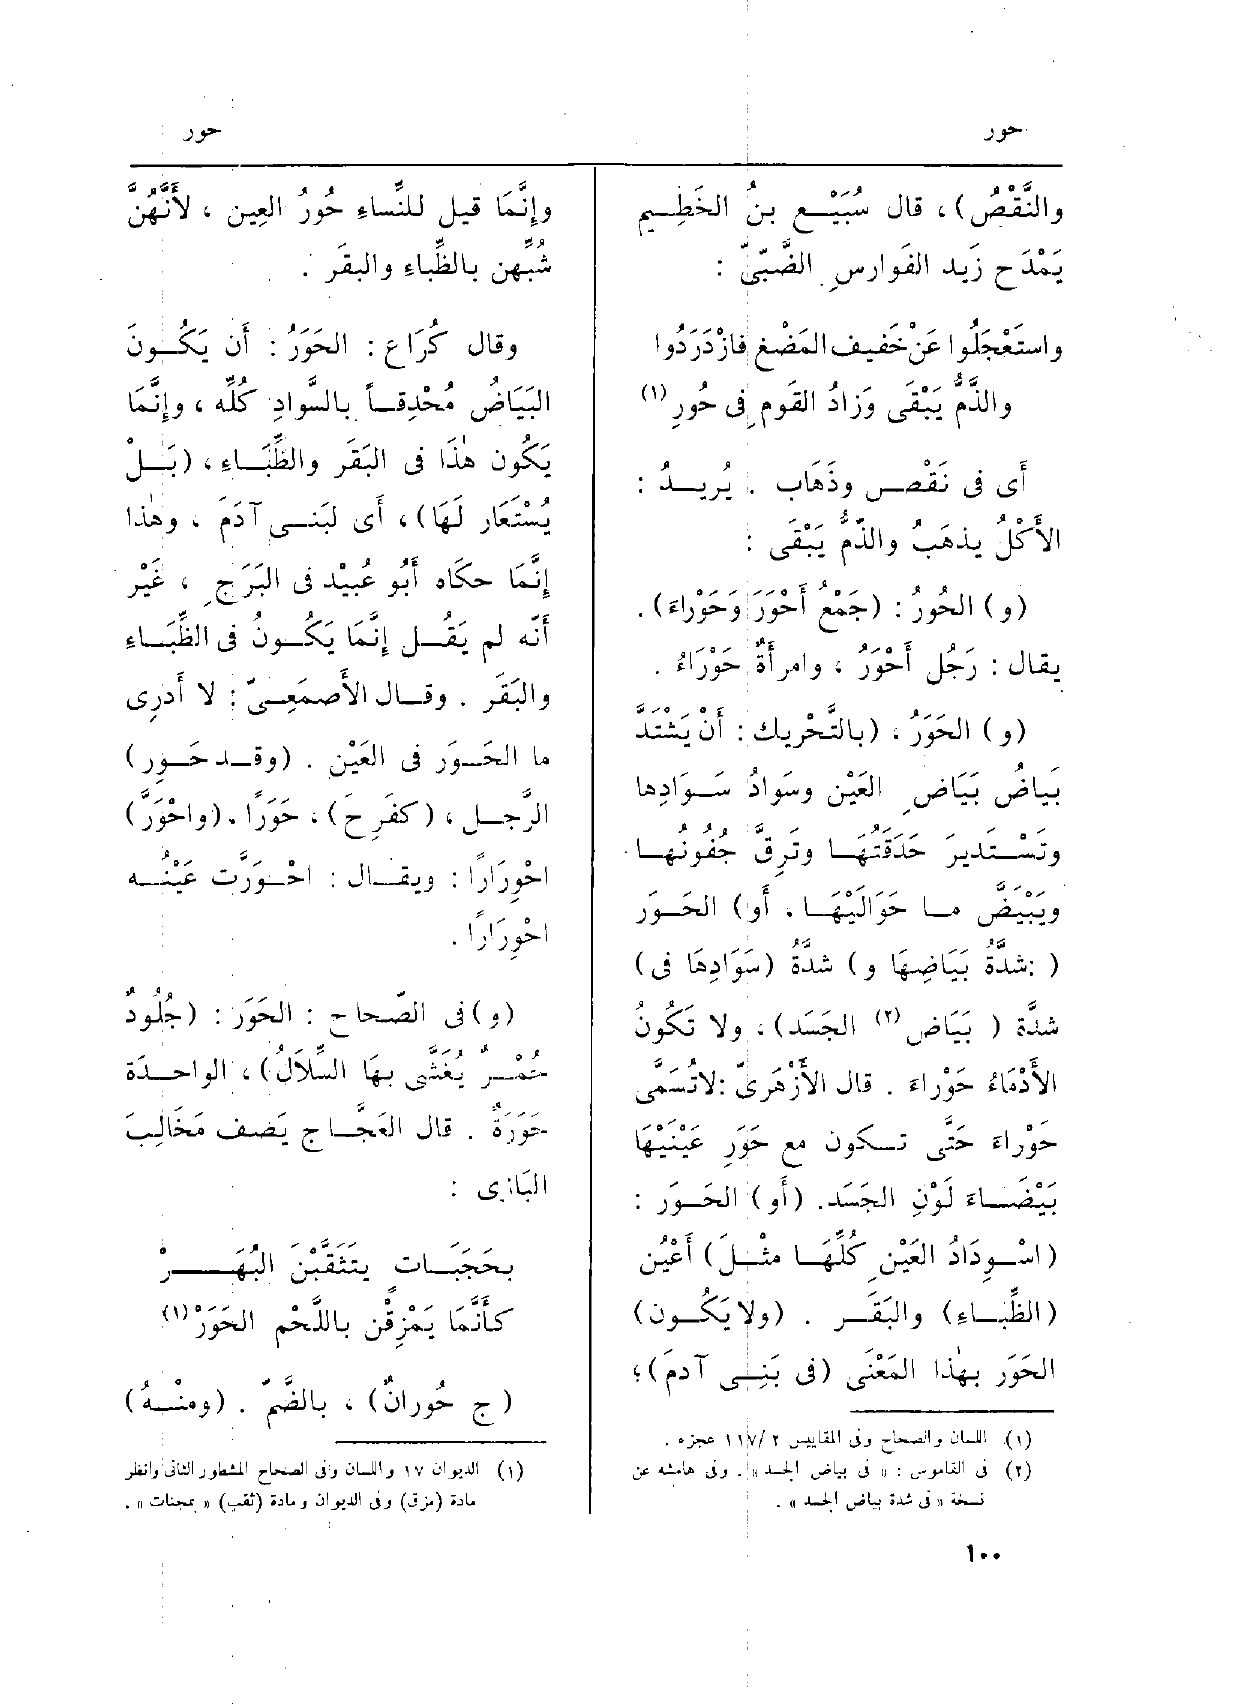 حور
والنَّقْصُ)، قال سُبَيْع بنُ الخَطِيم
يَمْدَح زَيد الفَوارسِ الضَّبِّىّ :
واستَعْجَلُوا عَنْ خَفيف المَضْغ فازْدَرَدُوا
والذَّمُّ يَبْقَى وَزادُ القَوم فى حُورِ (١)
أى فى نَقْص وذَهَاب . يُريدُ :
الأَكْلُ يذهَبُ والذَّمُّ يَبْقَى :
(و) الحُورُ : (جَمْعُ أَحْوَرَ وَحَوْراءَ) .
يقال : رَجُل أَحْوَرُ ، وامرأَةٌ حَوْرَاءُ .
(و) الحَوَرُ ، (بالتَّحْريك : أَنْ يَشْتَدَّ
بَيَاضُ بَيَاضِ العَيْن وسَوادُ سَوَادِها
وتَسْتديرَ حَدَقَتُهَا وتَرِقَّ جُفُونُها
ويَبْيَضَّ ما حَوَالَيْهَا ، أَو) الحَوَر
( : شدَّةُ بَيَاضِهَا و) شدَّةُ (سَوَادِهَا فى)
شدَّة ( بَيَاض (٢) الجَسَد) ، ولا تَكُونُ
الأَدْمَاءُ حَوْراءَ . قال الأَزْهَرىّ : لاتُسَمَّى
حَوْراءَ حَتَّى تكون مع حَوَرِ عَيْنَيْهَا
بَيْضَاءَ لَوْنِ الجَسَد. (أَو) الحَوَر :
(اسْوِدَادُ العَيْنِ كُلِّهَا مثْلَ) أَعْيُن
(الظِّبَاء) والبَقَر . (ولا يَكُون)
الحَوَر بهٰذا المَعْنَى (فى بَنِى آدمَ)؛
(١) اللسان والصحاح وفى المقاييس ٢ /١١٧ عجزه .
(٢) فى القاموس : « فى بياض الجسد » . وفى هامشه عن
نسخة « فى شدة بياض الجسد » .
١٠٠
حور
وإنَّمَا قيل للنِّساءِ حُورُ العِين ، لأَنَّهُنَّ
شُبِّهن بالظِّباءِ والبقَر .
وقال كُرَاع : الحَوَرُ : أَن يَكُونَ
البَيَاضُ مُحْدِقاً بالسَّوادِ كُلِّه ، وإنَّمَا
يَكُون هٰذَا فى البَقَر والظِّبَاءِ ، (بَلْ
يُسْتَعَار لَهَا)، أَى لبَنى آدَمَ ، وهٰذا
إنَّمَا حكَاه أَبُو عُبيْد فى البَرَجِ ، غَيْر
أَنّه لم يَقُل إنَّمَا يَكُونُ فى الظِّبَاءِ
والبَقَر . وقال الأَصمَعِىّ : لا أَدرِى
ما الحَوَر فى العَيْن . (وقد حَور)
الرَّجل ، (كفَرِحَ) ، حَوَرًا ، (واحْوَرَّ)
احْوِرَارًا : ويقال : احْوَرَّت عَيْنُه
احْوِرَارًا .
(و) فى الصّحاح : الحَوَر : (جُلُودٌ
حُمْرٌ يُغَشَّى بهَا السِّلاَلُ) ، الواحدَة
حَوَرَةٌ . قال العَجَّاج يَصف مَخَالِبَ
البَازى :
بحَجَبَات يَتَثَقَّبْنَ البُهَرْ
كأَنَّمَا يَمْزِقْن باللَّحْم الحَوَرْ (١)
(ج حُورانٌ) ، بالضَّم . (ومنْهُ)
(١) الديوان ١٧ واللسان وفى الصحاح المشطور الثانى وانظر
مادة (مزق) وفى الديوان ومادة (ثقب) « بمجنات » .